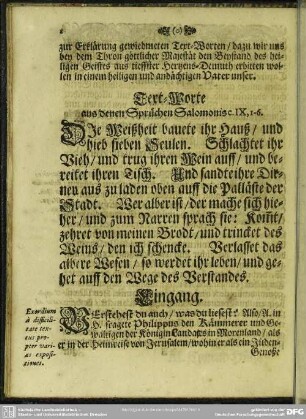 (o)
zur Erklärung gewiedmeten Text-Worten / dazu wir uns
bey dem Thron göttlicher Majestät den Beystand des hei-
ligen Geistes aus tieffster Hertzens-Demuth erbitten wol-
len in einem heiligen und andächtigen Vater unser.
Text-Worte
aus denen Sprüchen Salomonis c. IX, 1-6.
DJe Weißheit bauete ihr Hauß / und
hieb sieben Seulen. Schlachtet ihr
Vieh / und trug ihren Wein auff / und be-
reitet ihren Tisch. Und sandte ihre Dir-
nen aus zu laden oben auff die Palläste der
Stadt. Wer alber ist / der mache sich hie-
her / und zum Narren sprach sie: Kom̃t /
zehret von meinen Brodt / und trincket des
Weins / den ich schencke. Verlasset das
albere Wesen / so werdet ihr leben / und ge-
het auff den Wege des Verstandes.
Eingang.
Exordium
à difficul-
tate tex-
tus pro-
pter vari-
as exposi-
tiones.
VErstehest du auch / was du liesest? Also / A. in
H. fragete Philippus den Kämmerer und Ge-
waltigen der Königin Landaces in Morenland / als
er in der Heimreise von Jerusalem / wohin er als ein Jüden-
Genosse